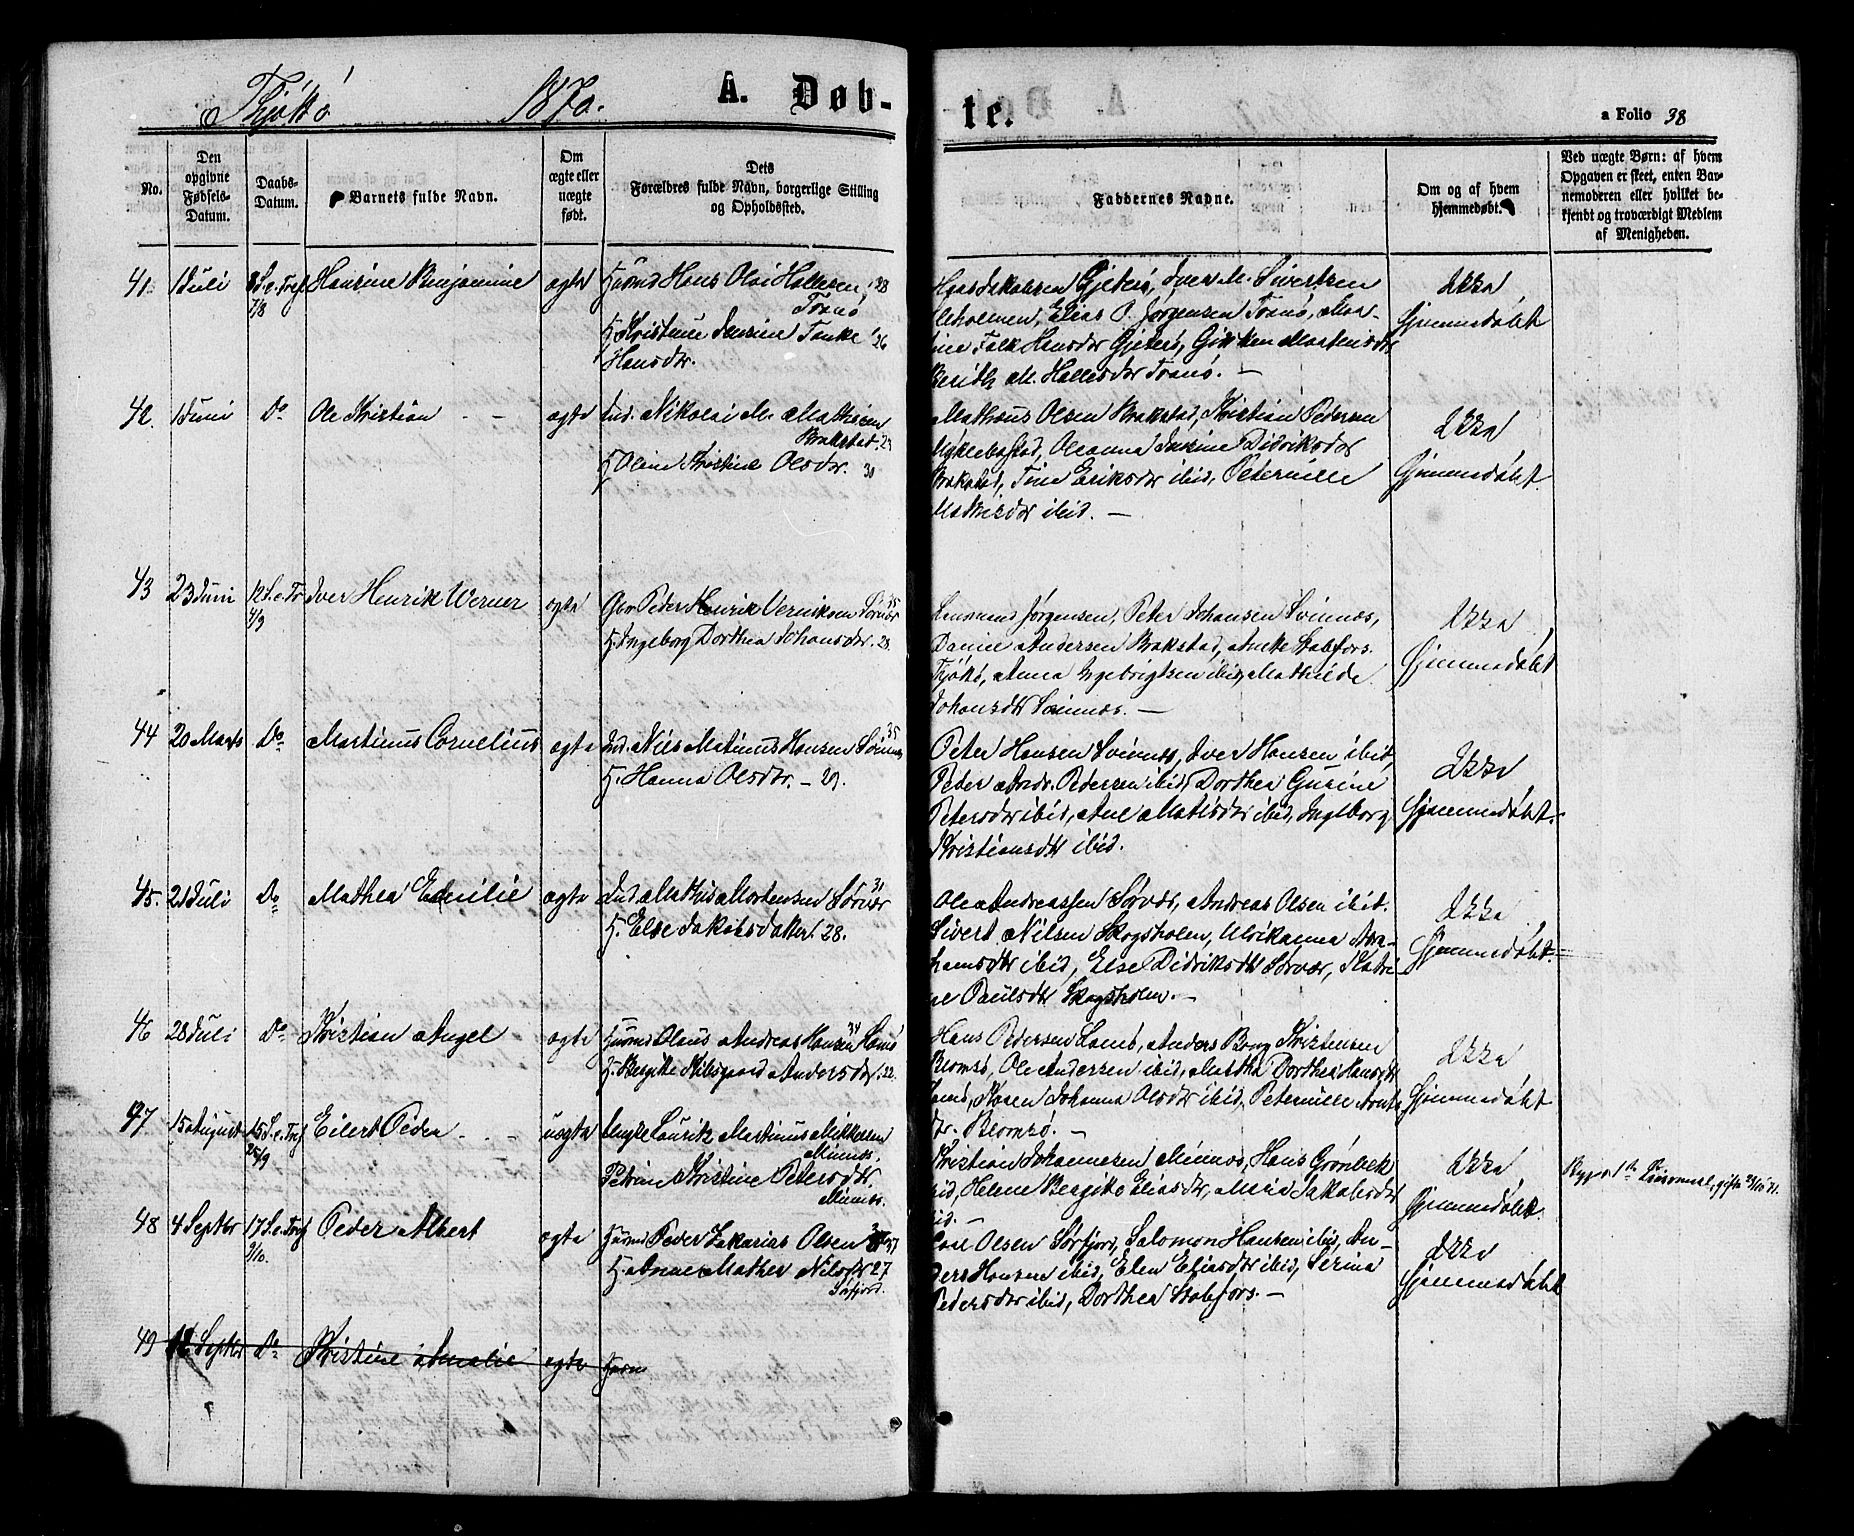 Thjøtø 1870. A. Døb-
te. a Folio 38
No.
Den opgivne Fødsels-Datum.
Daabs-Datum.
Barnets fulde Navn.
Om ægte eller uægte født.
Dets Forældres fulde Navn, borgerlige Stilling og Opholdssted.
Faddernes Navne.
Om og af hvem hjemmedøbt.
Ved uægte Børn: af hvem Opgaven er skeet, enten Barnemoderen eller hvilket bekjendt og troværdigt Medlem af Menigheden.
41. 1 Juli 8 S. e. Tref 7/8 Hansine Benjamine ægte Husmd Hans Olai Hallesen, 28
Tranø
H. Kristine Jensine Tanke 26
Hansdtr.
Gjeterø, Iver M. Sivertsen
Elias P. Jørgensen Tranø,
Falk Hansdtr Gjeterø,
Berith M. Hallesdtr Tranø. —
Ikke
hjemmedøbt
42. 1 Juni Do Ole Kristian - - ægte Ind. Nikolai M. Mathisen
Brakstad. 29
H. Oline Kristine Olsdtr. 30
Mathæus Olsen Brakstad, Kristian Pedersen
Myklebostad, Oleanna Didriksdtr
Brakstad, Tine Eriksdtr ibid, Peternille
ibid. —
Ikke
hjemmedøbt.
43 23 Juni 12 S. e. Tr 4/9 Iver Henrik Werner ægte Peder Henrik 35
H. Ingeborg Dorthea Johansdtr. 28.
Jørgensen, Peter Johansen Svinnæs,
Daniel Andersen Brakstad,
Tjøtø, Anna Ingebrigtsen ibid, Mathilde
Johansdtr Svinnæs. —
Ikke
hjemmedøbt
44 20 Marts Do Martinus Cornelius ægte Ind. Nils Matinus Hansen Svinnæs 35
H. Hanna Olsdtr. - 29.
Peter Hansen Svinnæs, Iver Hansen ibid,
Peter Andr. Pedersen ibid, Dorthea Gurine
Petersdtr ibid, Ane Matisdtr ibid, Ingeborg
Kristiansdtr ibid.
Ikke
hjemmedøbt.
45. 21 Juli Do Mathea Emilie ægte Ind. Mathis Mortensen Sørvær 31
H. Else Jakobsdatter. 28.
Ole Andreassen Sørvær, Andreas Olsen ibid.
Sivert Nilsen Skogsholm, Ulrikanna Abra-
hamsdtr ibid, Else Didriksdtr Sørvær, Katri-
ne Paulsdtr Skogsholm. —
Ikke
hjemmedøbt.
46 28 Juli Do Kristian Angel ægte Husmd Olaus Andreas Hansen 34
H. Bergitte Andersdtr. 22.
Hans Pedersen Anders Bong Kristensen
Blomsø, Ole Andersen ibid, Martha Dorthea Hansdtr
Karen Johanna Olsdtr ibid, Peternille
dtr. Blomsø. —
Ikke
hjemmedøbt
47 15 August 15 S. e. Tref 25/9 Eilert Peder - - uægte Ungkl Lauritz Martinus Mikkelsen
Minnæs.
Petrine Kristine Petersdtr.
Minnæs.
Kristian Johannesen Minnæs, Hans Grønbek
ibid, Helene Bergitte Eliasdtr, Maria Jakobsdtr
ibid. —
Ikke
hjemmedøbt.
48 4 Septbr 17 S. e. Tref 9/10. Peder Albert ægte Husmd Peder Zakarias Olsen 37
H. Anne Mathea Nilsdtr 27
Sørfjord.
Olsen Sørfjord, Salomon Hansen ibid, An-
ders Hansen ibid, Elen Eliasdtr ibid, Serina
Pedersdtr ibid, Dorthea Stabfors. —
Ikke
hjemmedøbt
49 Septbr Do Kristine Amalie ægte Husm